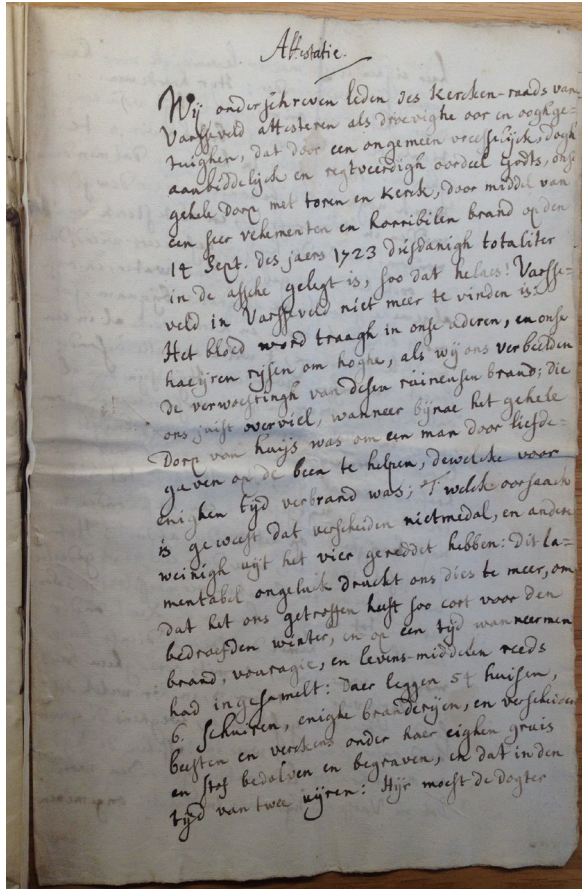 Attestatie.
Wij onderschreven leden des Kercken-raads van
Varsseveld attesteren als droevighe oor en oogh ge-
tuighen, dat door een ongemeen vreesselijck, dogh
aanbiddelijck en regtveerdigh oordeel Godts, onse
gehele Dorp met toren en Kerck, door middel van
een seer vehementen en horribilen brand op den
14 Sept. des jaers 1723 dusdanigh totaliter
in de assche gelegt is, soo dat helaes! Varsse-
veld in Varsseveld niet meer te vinden is:
Het bloed word traagh in onse aderen, en onse
haeijren rijsen om hoghe, als wij ons verbeelden
de verwoestingh van desen ruineusen brand; die
ons juist overviel, wanneer bijnae het gehele
Dorp van huijs was om een man door liefde-
gaven op de been te helpen, dewelcke voor
enighen tijd verbrand was; 't welck oorsaack
is geweest dat verscheiden nietmedal, en andere
weinigh uijt het vier gereddet hebben: Dit la-
mentabel ongeluck druckt ons dies te meer, om
dat het ons getroffen heeft soo cort voor den
bedroefden winter, en op een tijd wanneer men
brand, vouragie, en levens-middelen reeds
had ingesamelt: Daer leggen 54 huisen,
6. schuiren, enighe branderijen, en verscheiden
beesten en verckens onder haer eighen gruis
en stof bedolven en begraven, en dat in den
tijd van twee uijren: Hijr moest de Dogter